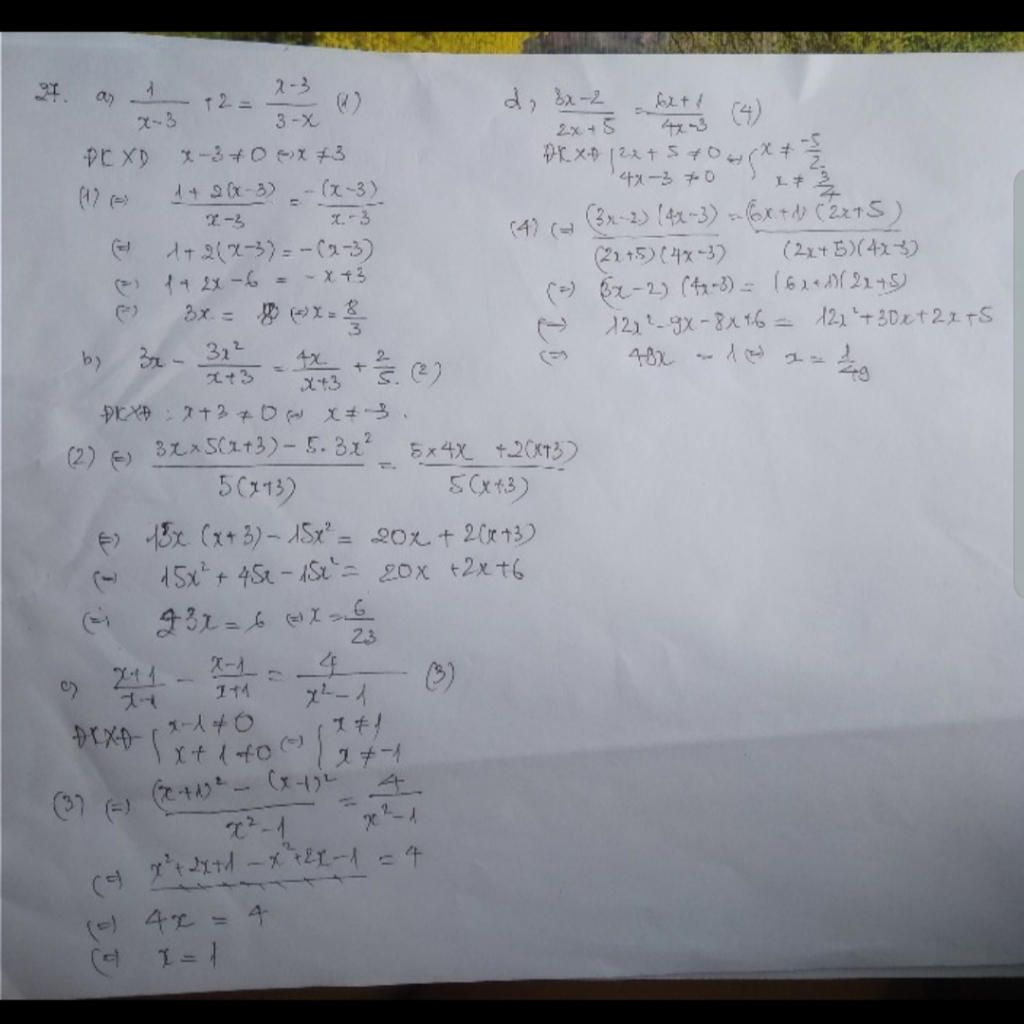 27. a) 1/(x-3) + 2 = (x-3)/(3-x) (1)
ĐKXĐ x-3 ≠ 0 ⇔ x ≠ 3
(1) ⇔ (1+2(x-3))/(x-3) = (-(x-3))/(x-3)
⇔ 1+2(x-3) = -(x-3)
⇔ 1+2x-6 = -x+3
⇔ 3x = 8 ⇔ x = 8/3
b) 3x - 3x²/(x+3) = 4x/(x+3) + 2/5. (2)
ĐKXĐ : x+3 ≠ 0 ⇔ x ≠ -3.
(2) ⇔ (3x×5(x+3) - 5.3x²)/(5(x+3)) = (5×4x +2(x+3))/(5(x+3))
⇔ 15x (x+3) - 15x² = 20x + 2(x+3)
⇔ 15x² + 45x - 15x² = 20x +2x+6
⇔ 23x = 6 ⇔ x = 6/23
c) (x+1)/(x-1) - (x-1)/(x+1) = 4/(x²-1) (3)
ĐKXĐ { x-1 ≠ 0 ⇔ { x ≠ 1
x+1 ≠ 0 x ≠ -1
(3) ⇔ ((x+1)² - (x-1)²)/(x²-1) = 4/(x²-1)
⇔ x²+2x+1 - x²+2x-1 = 4
⇔ 4x = 4
⇔ x = 1
d, (3x-2)/(2x+5) = (6x+1)/(4x-3) (4)
ĐKXĐ { 2x+5 ≠ 0 ⇔ { x ≠ -5/2
4x-3 ≠ 0 x ≠ 3/4
(4) ⇔ ((3x-2)(4x-3))/((2x+5)(4x-3)) = ((6x+1)(2x+5))/((2x+5)(4x-3))
⇔ (3x-2)(4x-3) = (6x+1)(2x+5)
⇔ 12x²-9x-8x+6 = 12x²+30x+2x+5
⇔ 48x = 1 ⇔ x = 1/49